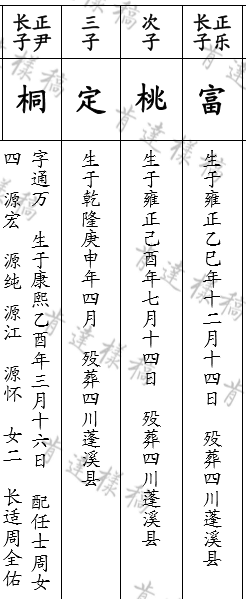 正乐
长子
富
生于雍正乙巳年十二月十四日 殁葬四川蓬溪县
次子
桃
生于雍正己酉年七月十四日 殁葬四川蓬溪县
三子
定
生于乾隆庚申年四月 殁葬四川蓬溪县
正尹
长子
桐
字通万 生于康熙乙酉年三月十六日 配任士周女
四 源宏 源纯 源江 源怀 女二 长适周全佑
肯達樣稿